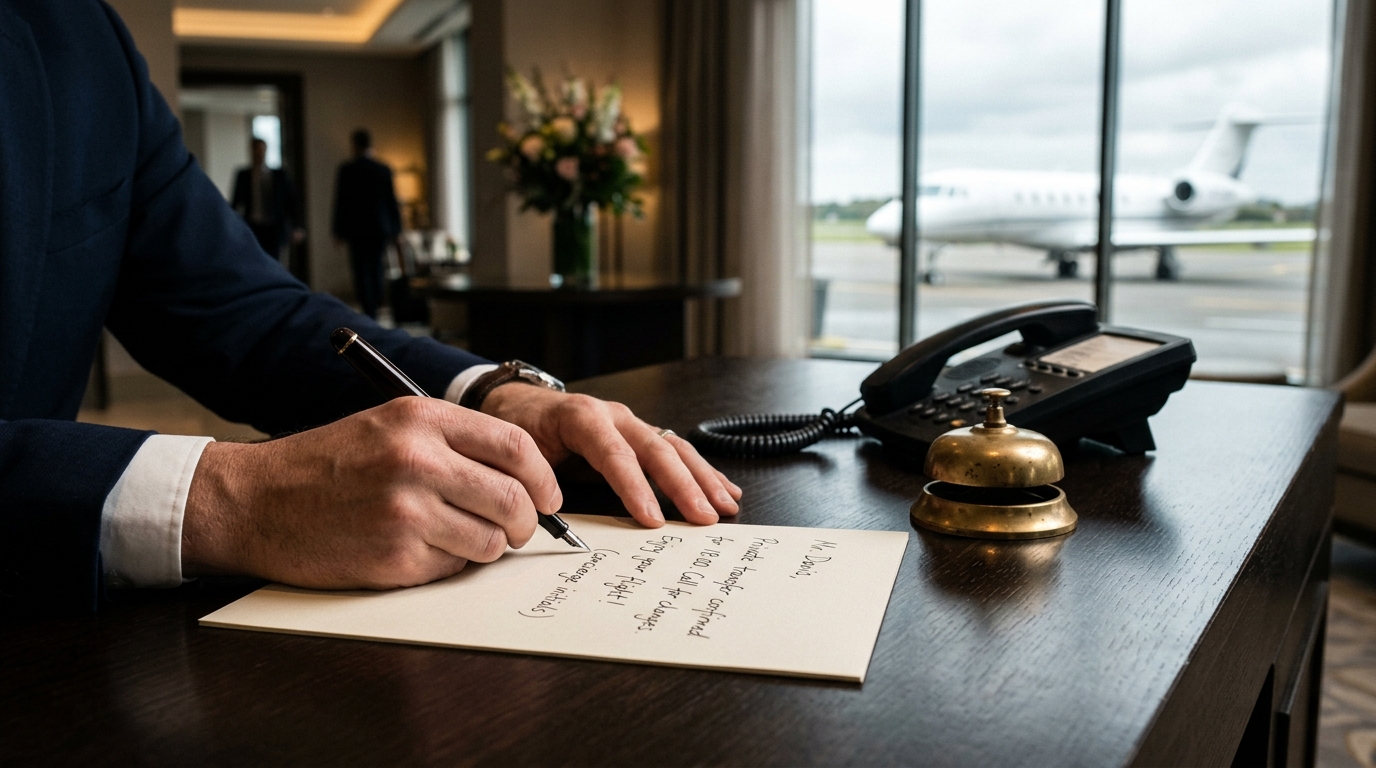 Mr Davis,
Private transfer confirmed
for 18:00. Call for changes.
Enjoy your flight!
(Concierge initials)